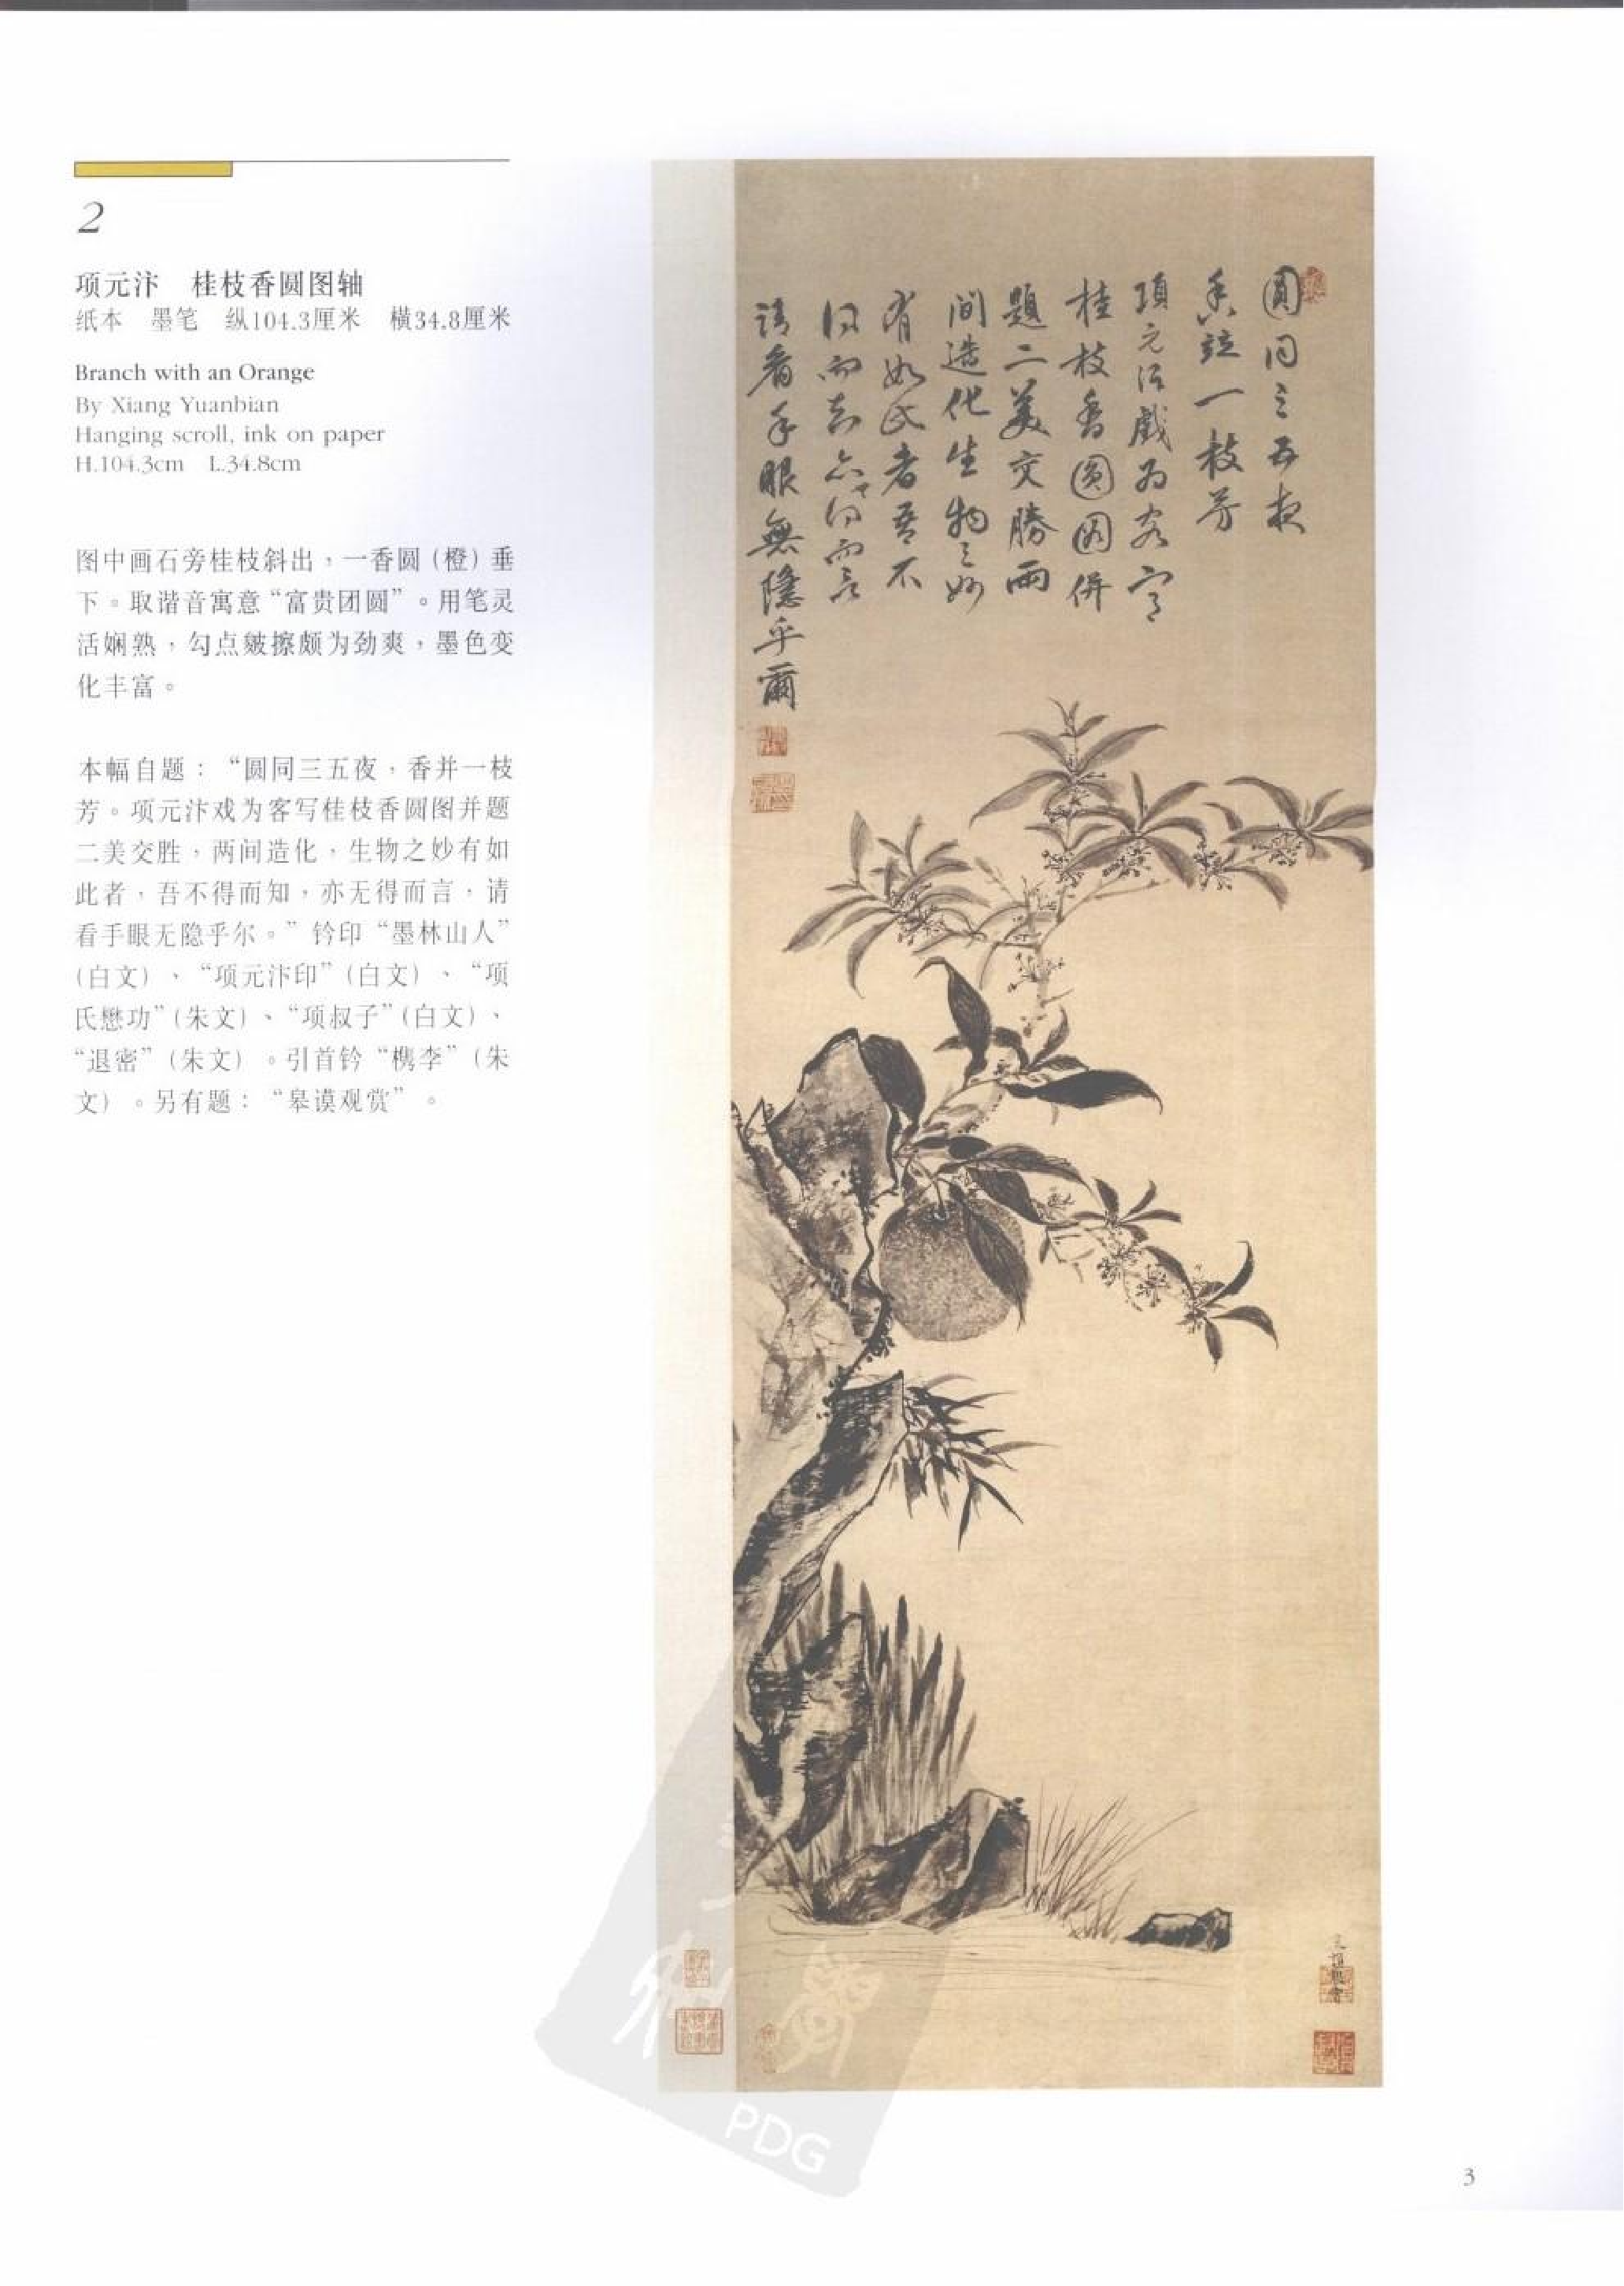 2
项元汴　桂枝香圆图轴
纸本　墨笔　纵104.3厘米　横34.8厘米
Branch with an Orange
By Xiang Yuanbian
Hanging scroll, ink on paper
H.104.3cm　L.34.8cm
图中画石旁桂枝斜出，一香圆（橙）垂
下。取谐音寓意“富贵团圆”。用笔灵
活娴熟，勾点皴擦颇为劲爽，墨色变
化丰富。
本幅自题：“圆同三五夜，香并一枝
芳。项元汴戏为客写桂枝香圆图并题
二美交胜，两间造化，生物之妙有如
此者，吾不得而知，亦无得而言，请
看手眼无隐乎尔。”钤印“墨林山人”
(白文）、“项元汴印”(白文）、“项
氏懋功”(朱文）、“项叔子”(白文）、
“退密”（朱文）。引首钤“槜李”（朱
文）。另有题：“皋谟观赏”。
圓同三五夜
香竝一枝芳
項元汴戲為客寫
桂枝香圓圖併
題二美交勝兩
間造化生物之妙
有如此者吾不
得而知亦不得而言
請看手眼無隱乎爾
PDG
3